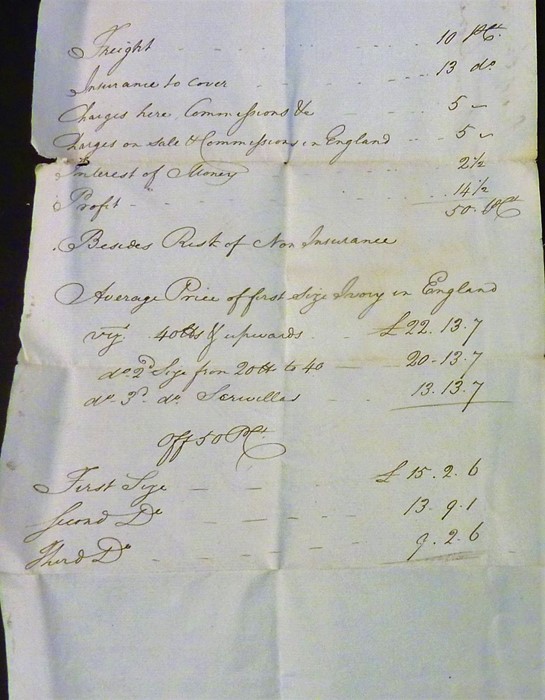 Freight - - - - - - 10 P Ct.
Insurance to cover - - - - - 13 do.
Charges here, Commissions &c - - - 5 "
Charges on Sale & Commissions in England - - 5 "
Interest of Money - - - - 2½
Profit - - - - - 14½
50. P Ct
Besides Risk of Non Insurance
Average Price of first Size Ivory in England
vizt. 40lbs & upwards - £22.13.7
do. 2d Size from 20lb to 40 — 20-13.7
do. 3d. do. Scrivellas - - 13.13.7
Off 50 P Ct.
First Size — — — — £15.2.6
Second Do — — — — 13.9.1
Third Do - - - - - 9.2.6